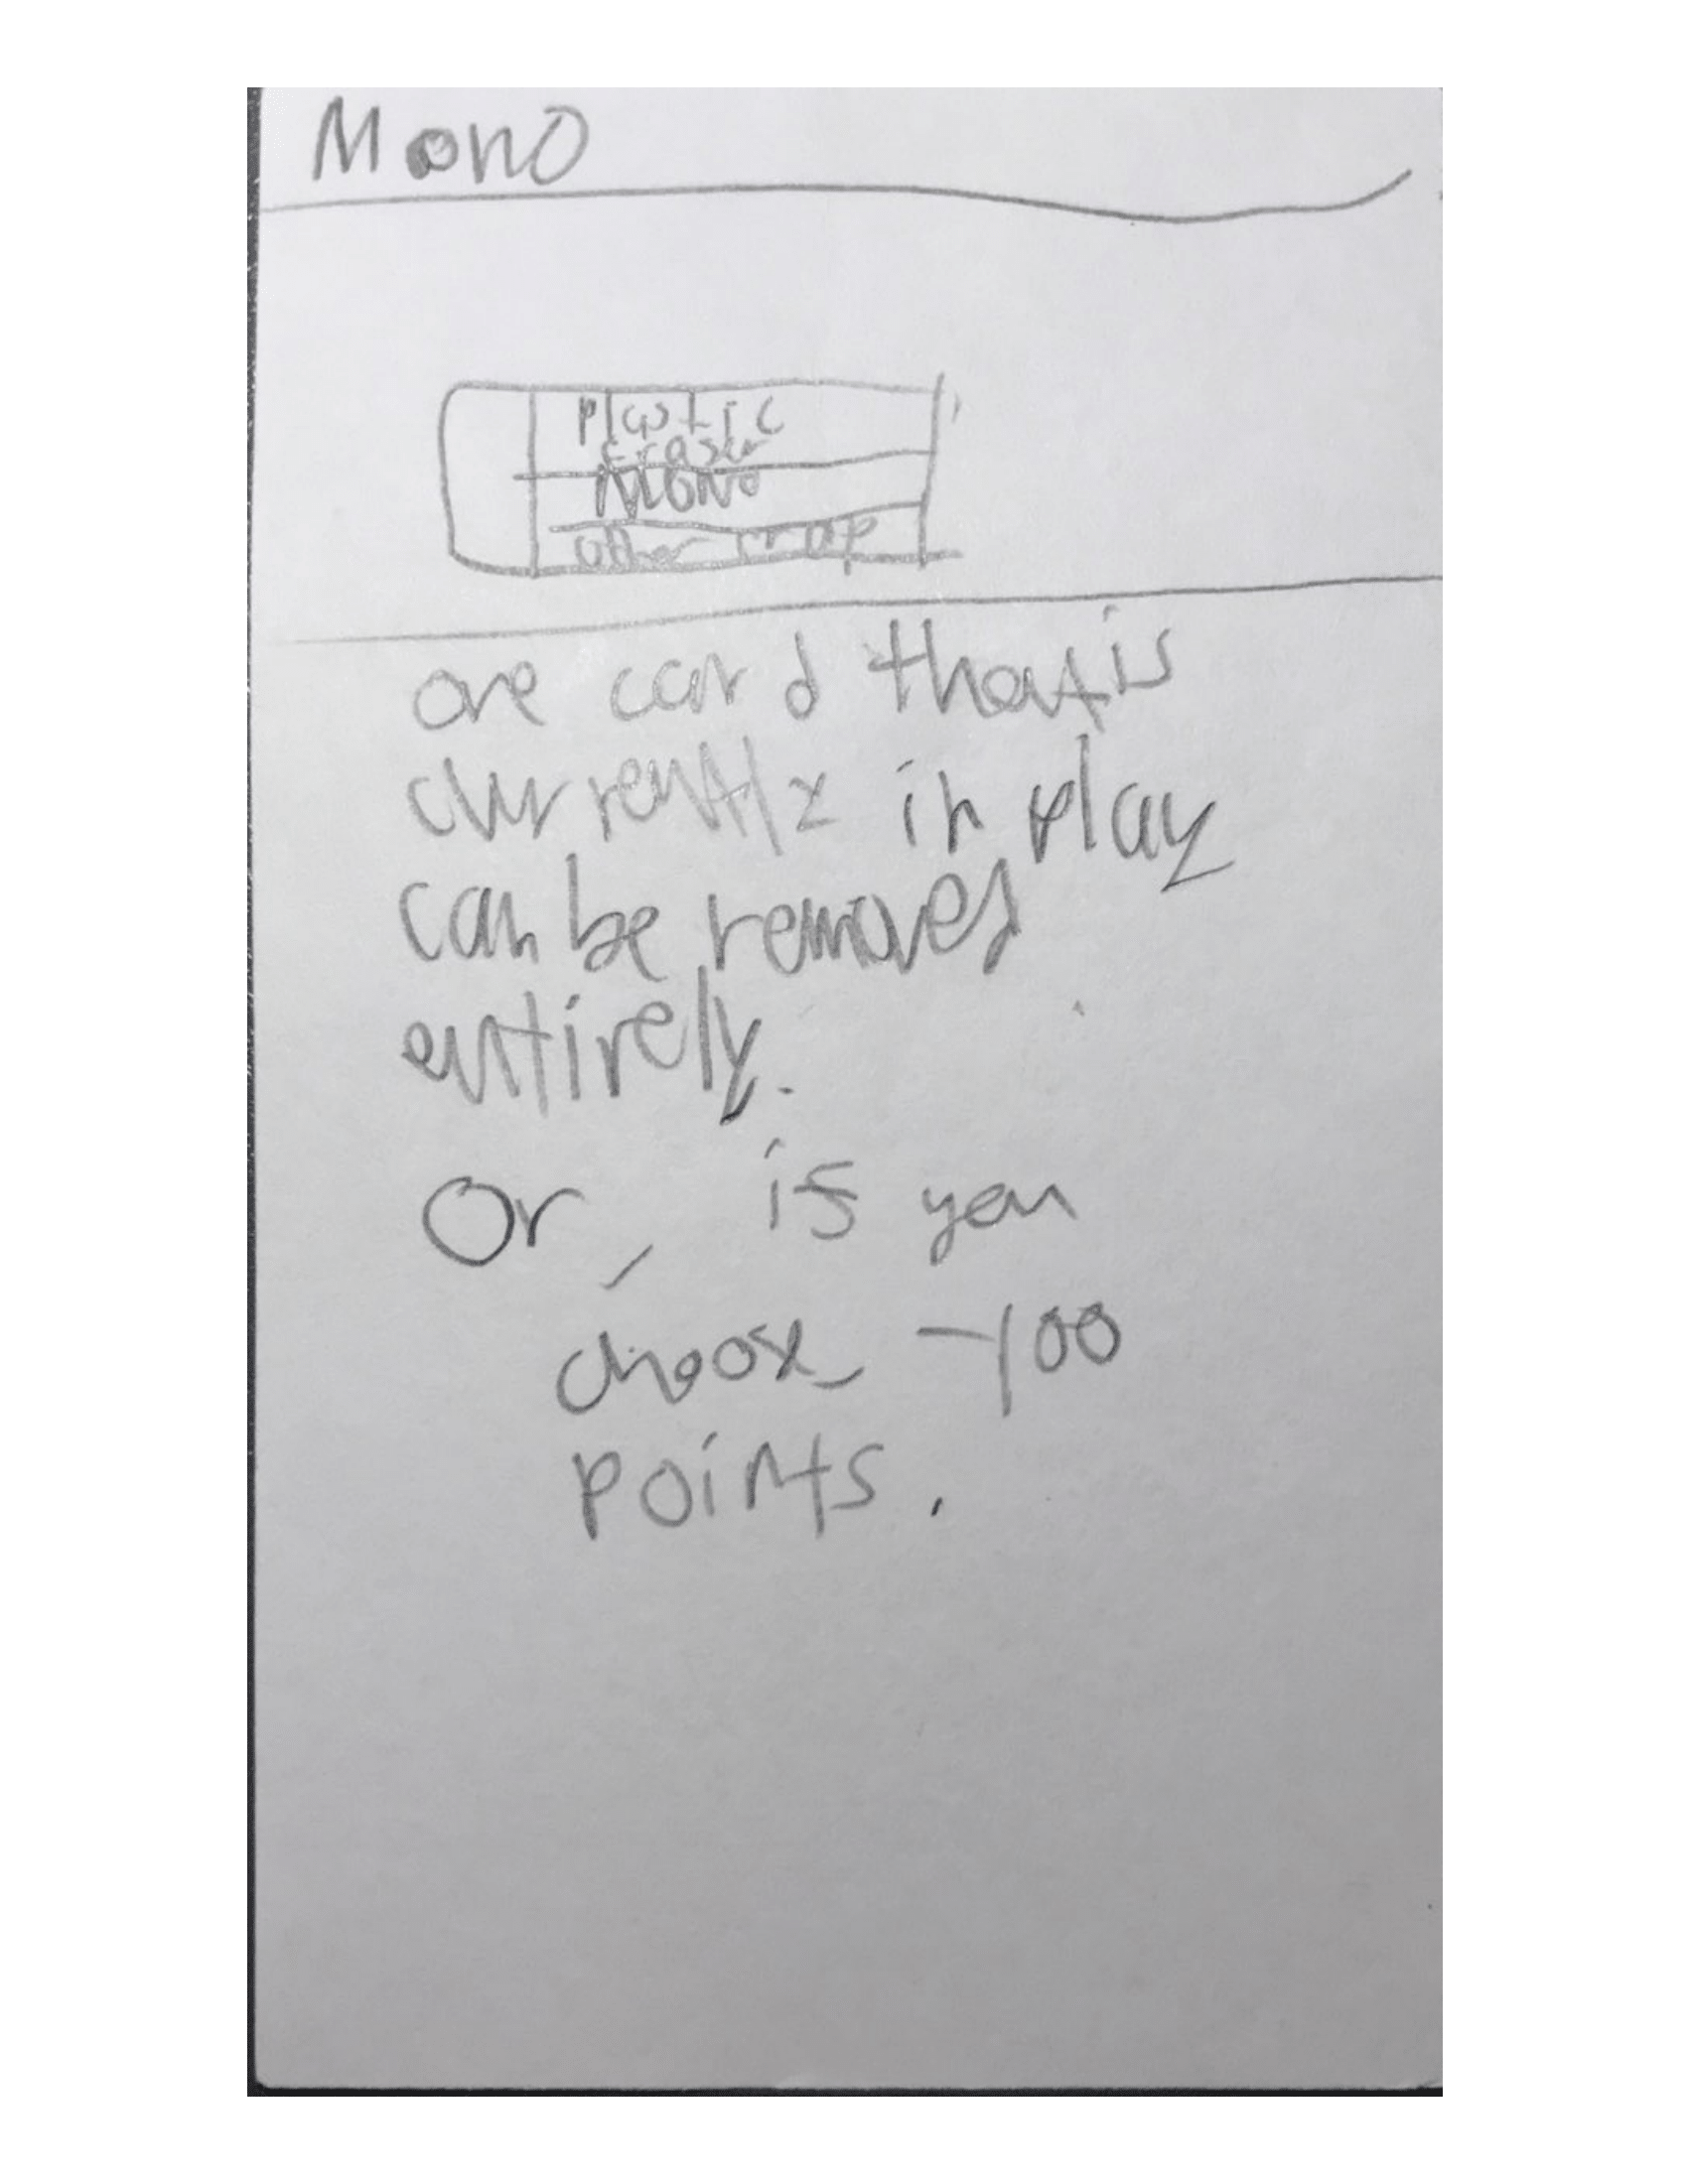 Mono
Plastic
eraser
MONO
other crap
one card that is
currently in play
can be removed
entirely.
Or, if you
choose -100
points.